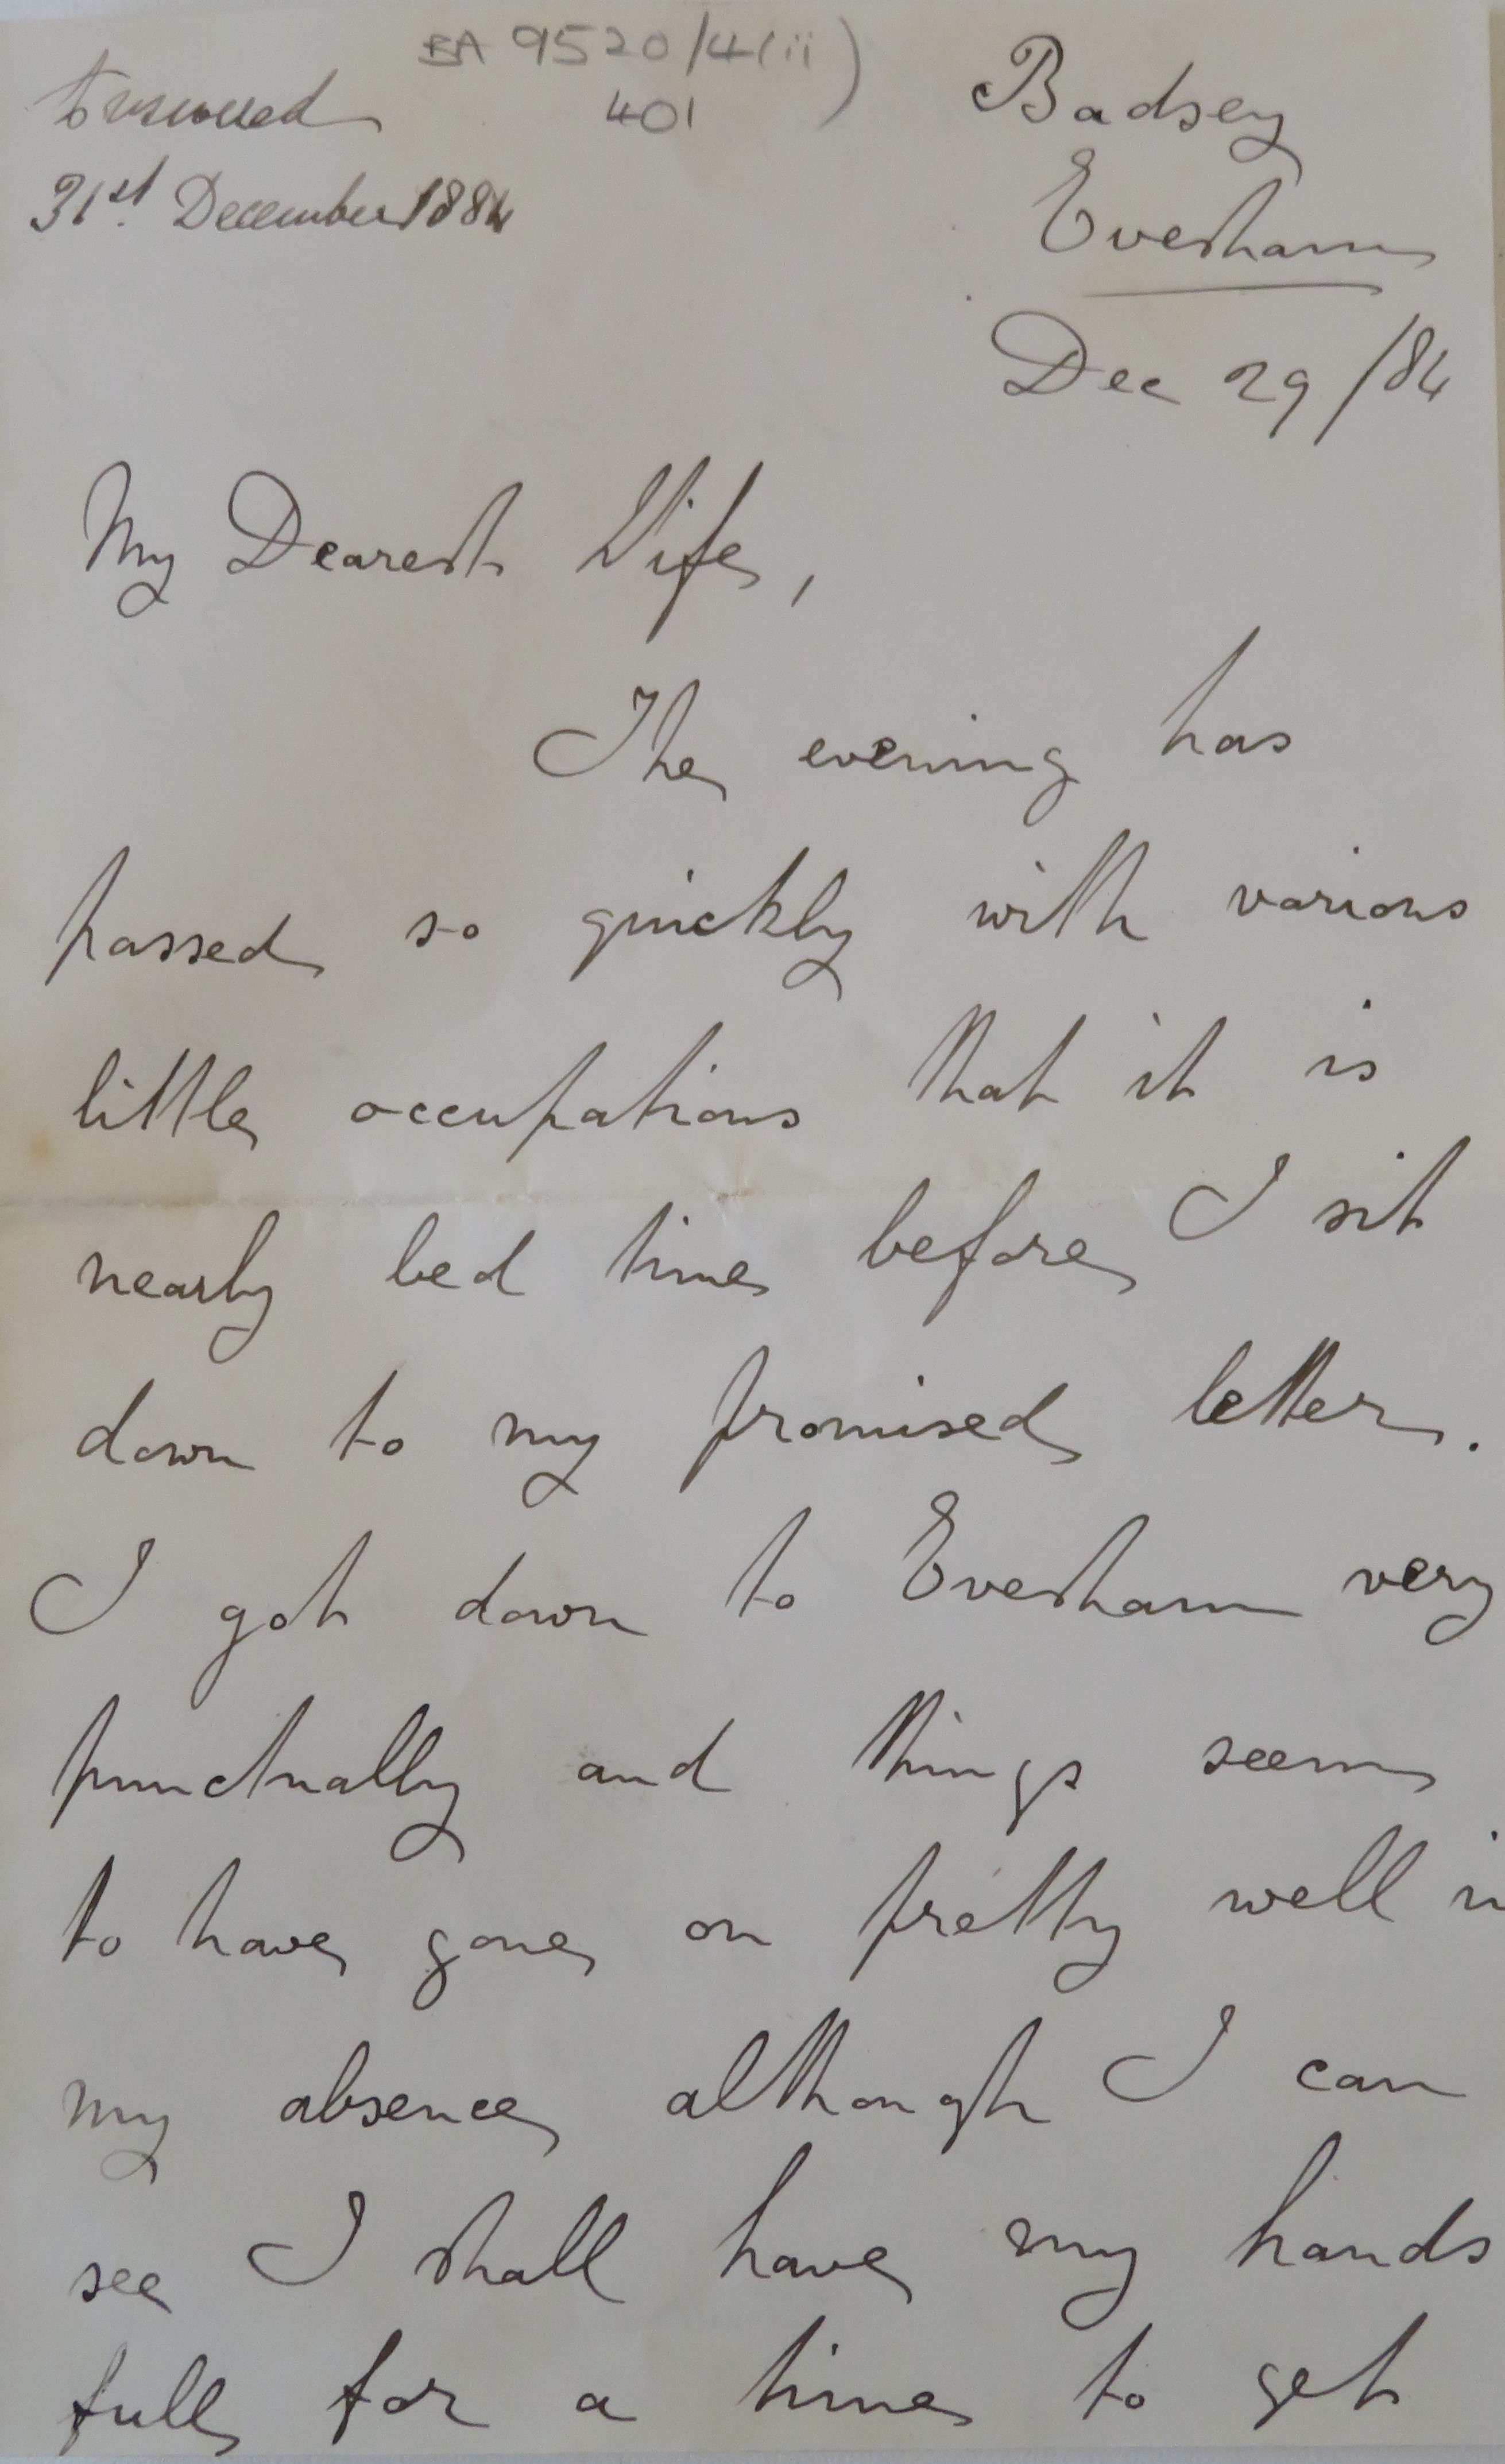 BA 9520/4(ii)
401
Answered
31st. December 1884
Badsey
Evesham
Dec 29/84
My Dearest Wife,
The evening has
passed so quickly with various
little occupations that it is
nearly bed time before I sit
down to my promised letter.
I got down to Evesham very
punctually and things seem
to have gone on pretty well in
my absence although I can
see I shall have my hands
full for a time to get